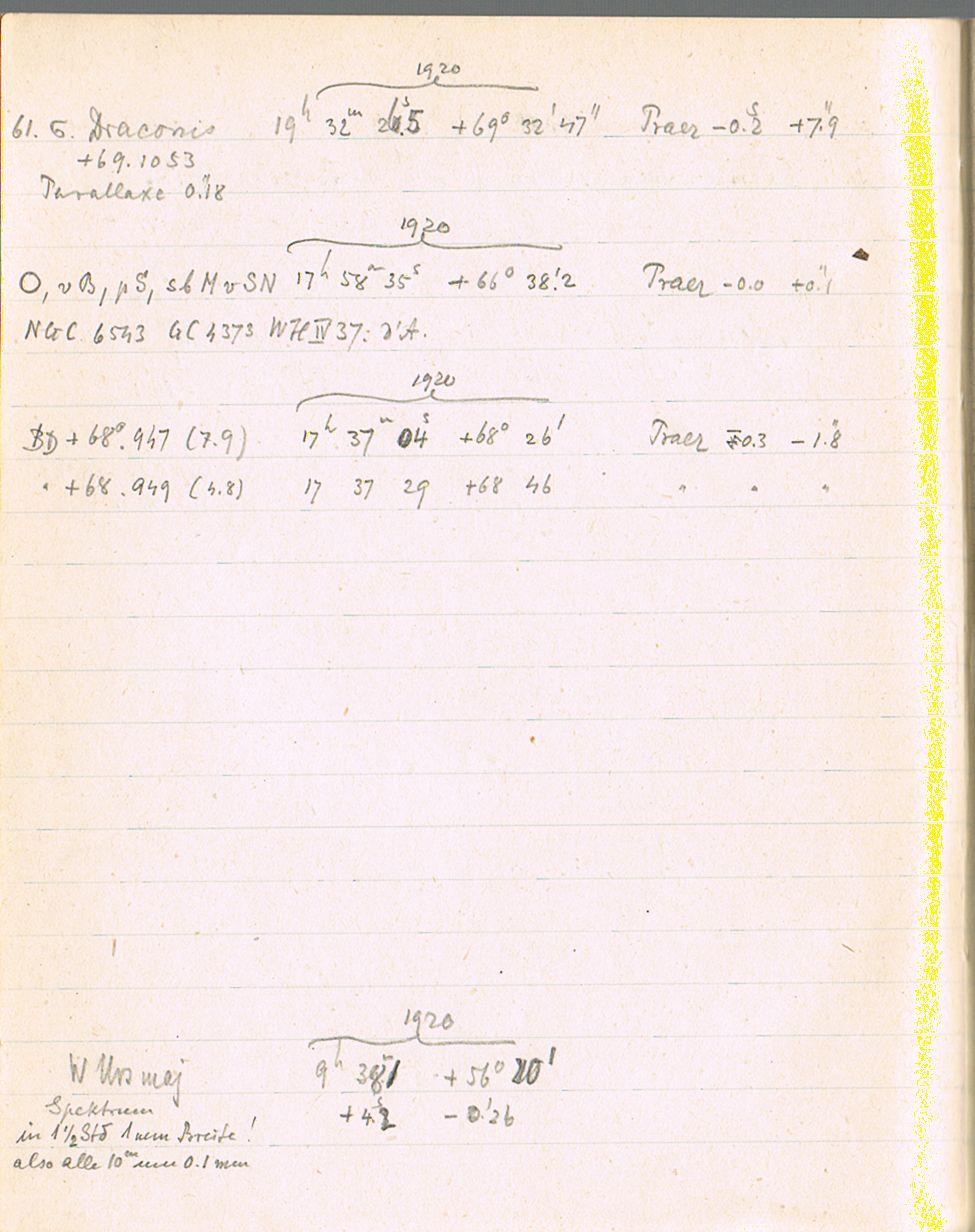 1920
61. σ. Draconis 19h 32m 26s.5 +69° 32' 47" Praez -0.s2 +7".9
+69.1053
Parallaxe 0".18
1920
O, vB, pS, sbMvSN 17h 58m 35s +66° 38!2 Praez -0.0 +0".1
NGC 6543 GC 4373 WH IV 37. d'A.
1920
BD +68°.947 (7.9) 17h 37m 04s +68° 26' Praez 0.3 -1".8
" +68.949 (4.8) 17 37 29 +68 46 " " "
1920
W Urs maj 9h 38m1 +56° 20'
Spektrum +4.s2 -0!26
in 1½ Std 1 mm Breite!
also alle 10m um 0.1 mm